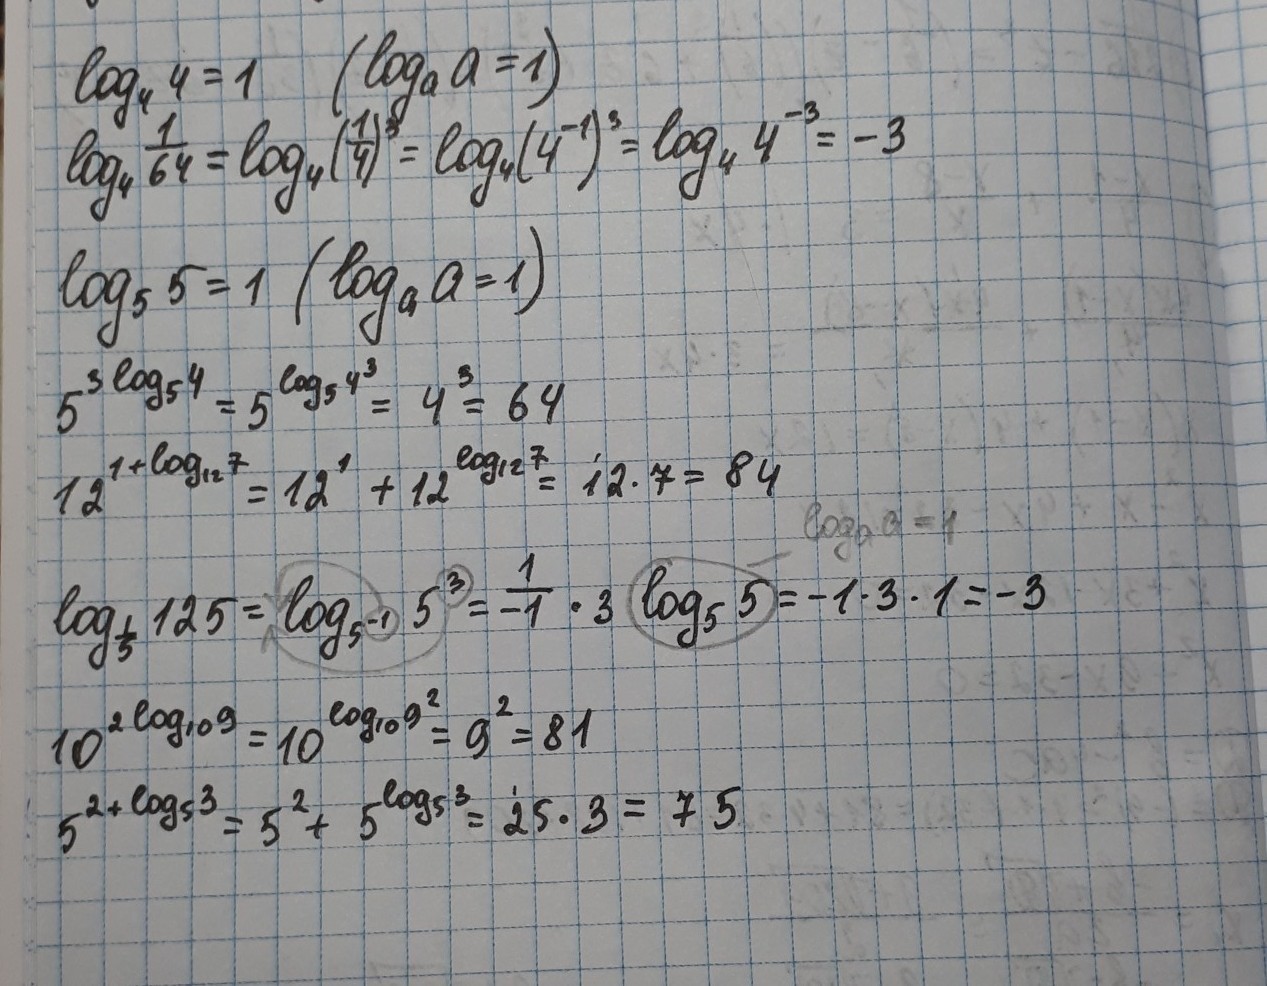 log₄ 4 = 1 (logₐ a = 1)
log₄ 1/64 = log₄ (1/4)³ = log₄ (4⁻¹)³ = log₄ 4⁻³ = -3
log₅ 5 = 1 (logₐ a = 1)
5^(3 log₅ 4) = 5^(log₅ 4³) = 4³ = 64
12^(1 + log₁₂ 7) = 12¹ + 12^(log₁₂ 7) = 12 · 7 = 84
logₐ a = 1
log_(1/5) 125 = log_(5⁻¹) 5³ = 1/-1 · 3 log₅ 5 = -1 · 3 · 1 = -3
10^(2 log₁₀ 9) = 10^(log₁₀ 9²) = 9² = 81
5^(2 + log₅ 3) = 5² + 5^(log₅ 3) = 25 · 3 = 75